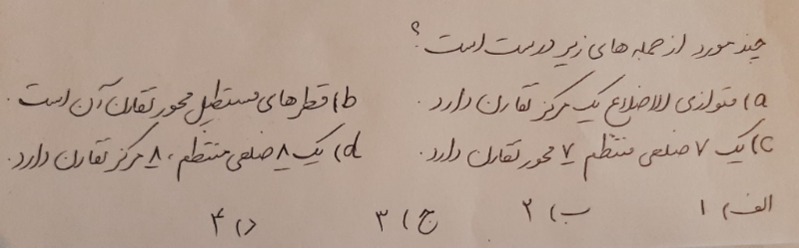 چند مورد از جمله های زیر درست است؟
a) متوازی الاضلاع یک مرکز تقارن دارد. b) قطرهای مستطیل محور تقارن آن است.
c) یک ۷ ضلعی منتظم ۷ محور تقارن دارد. d) یک ۸ ضلعی منتظم، ۸ مرکز تقارن دارد.
الف) ۱ ب) ۲ ج) ۳ د) ۴